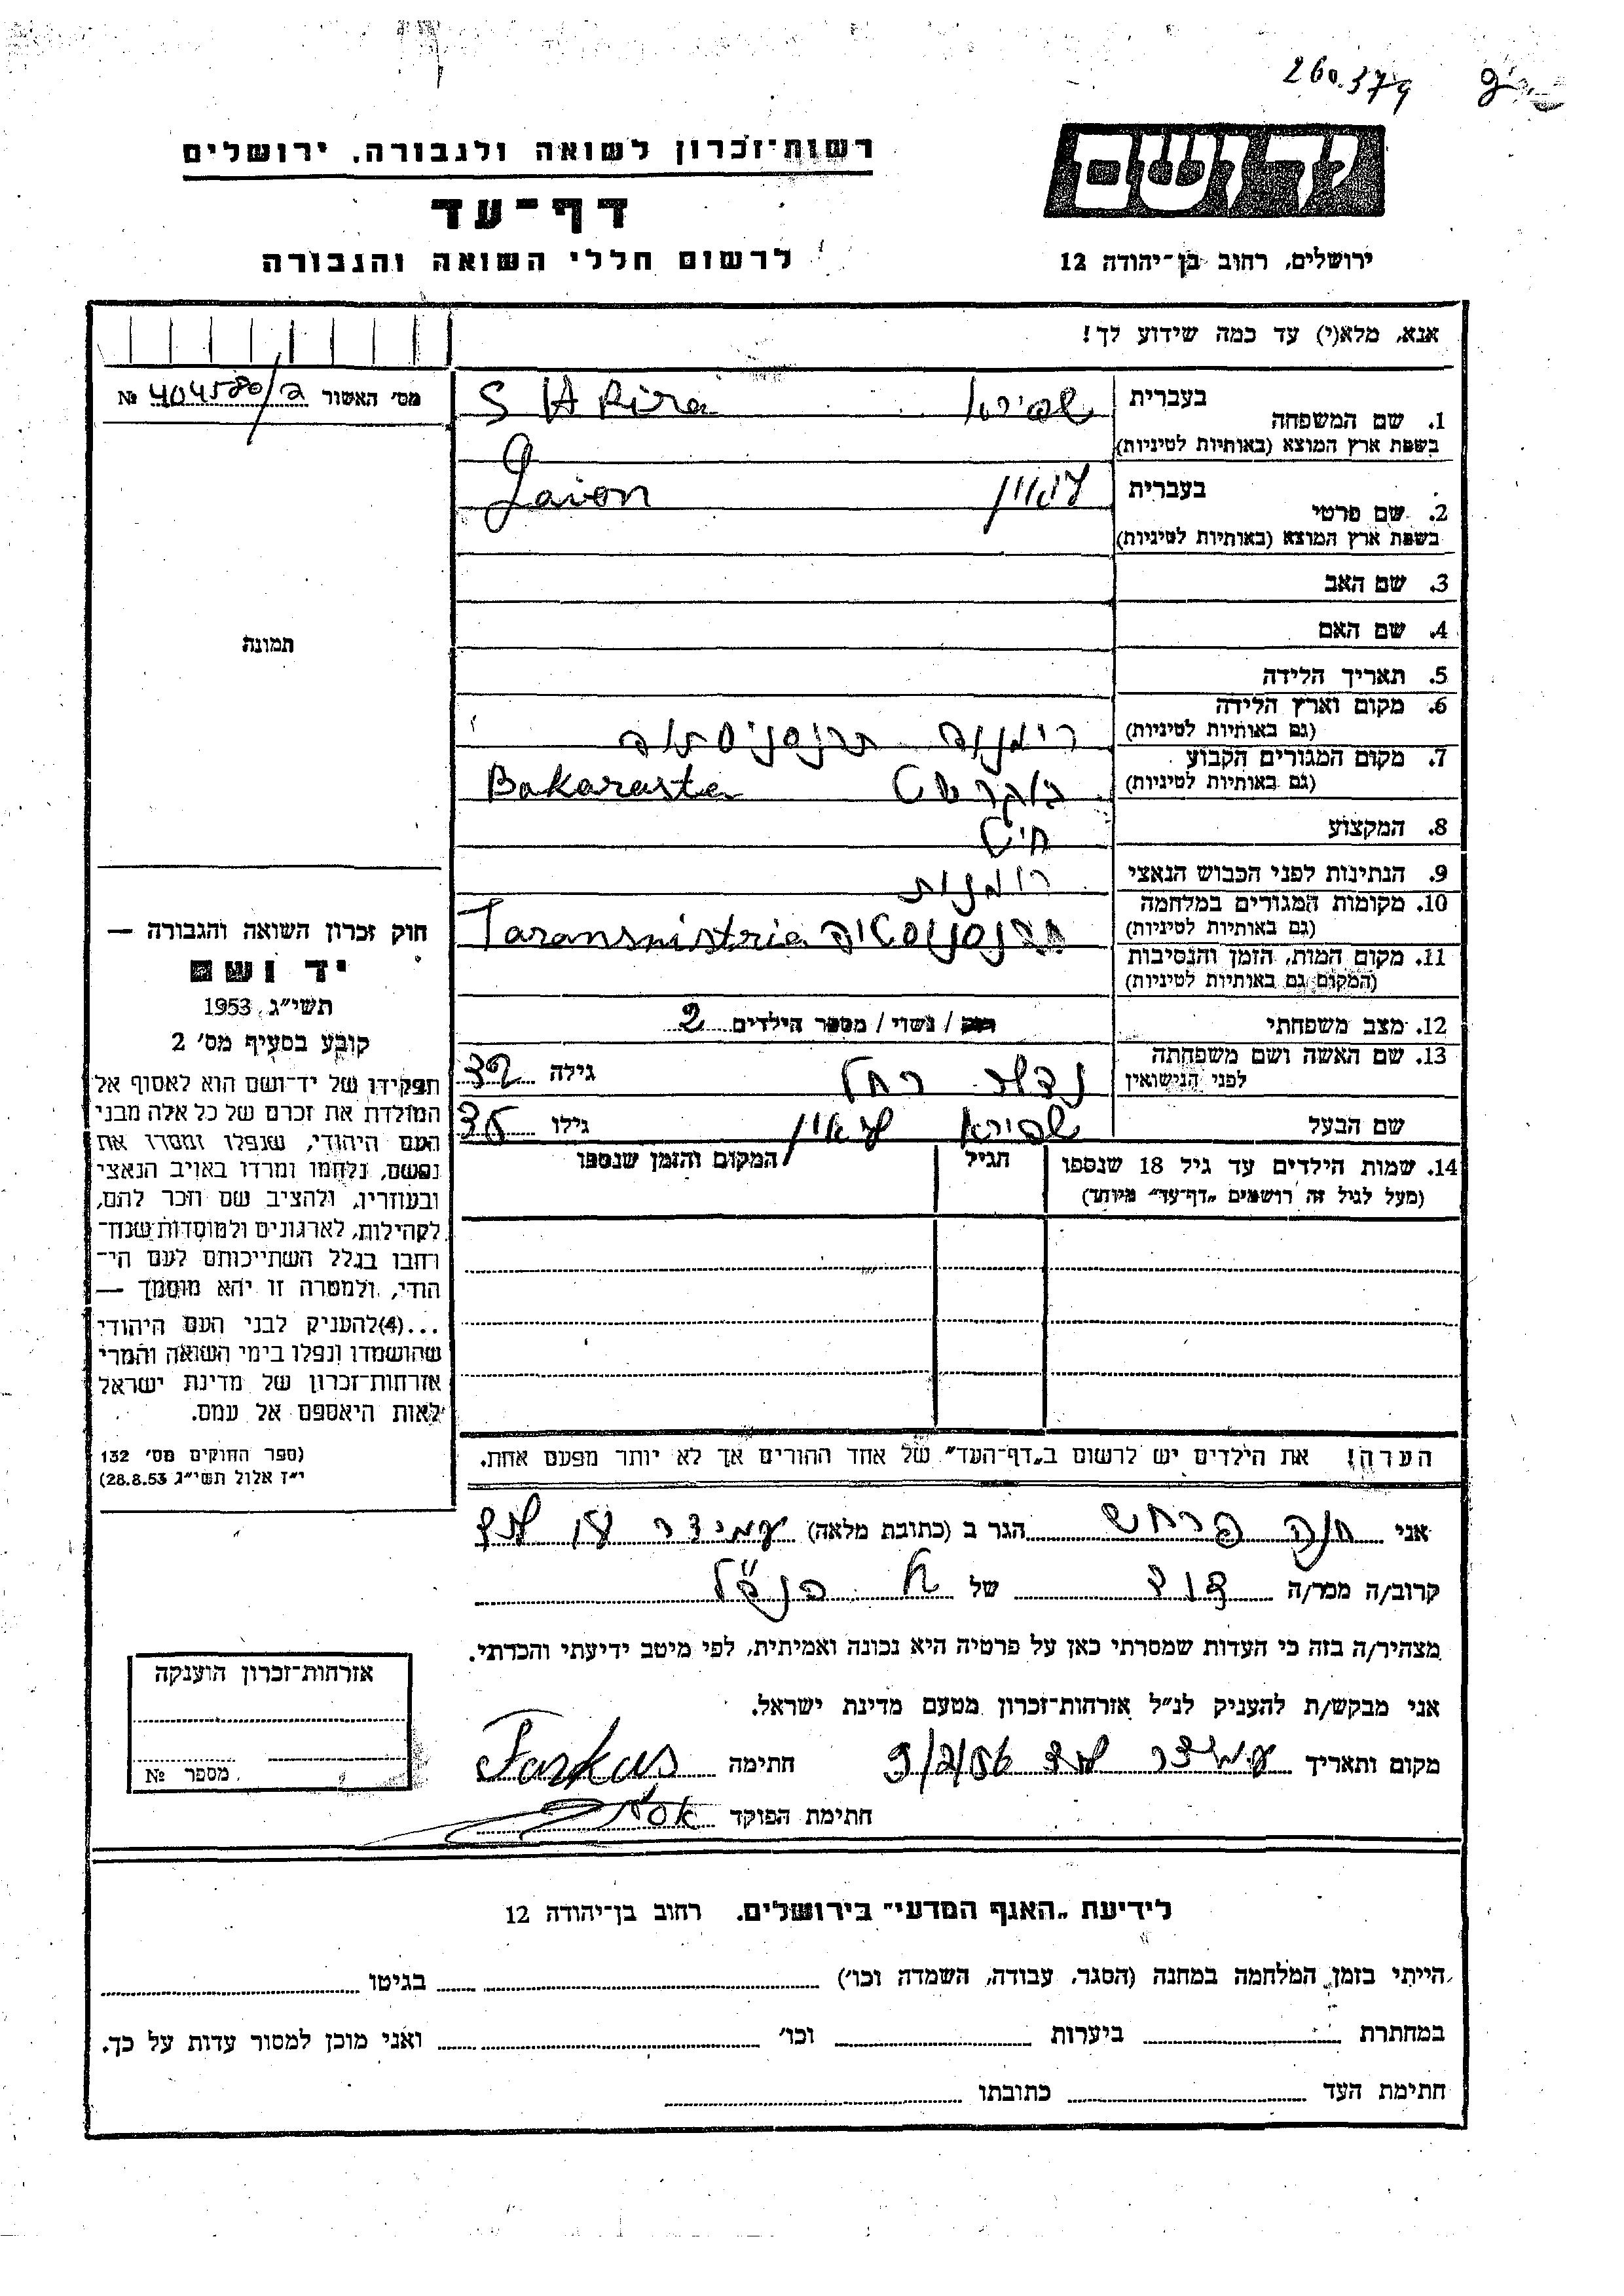 260.379
רשות־זכרון לשואה ולגבורה, ירושלים
דף־עד
לרשום חללי השואה והגבורה
יד ושם
ירושלים, רחוב בן־יהודה 12
אנא, מלא(י) עד כמה שידוע לך!
מס׳ האשור № 404580/2
1. שם המשפחה בעברית שפירא SHApira
בשפת ארץ המוצא (באותיות לטיניות)
2. שם פרטי בעברית
בשפת ארץ המוצא (באותיות לטיניות)
3. שם האב
4. שם האם
5. תאריך הלידה
6. מקום וארץ הלידה
(גם באותיות לטיניות)
7. מקום המגורים הקבוע בוקרשט Bakaresta
(גם באותיות לטיניות)
8. המקצוע חיט
9. הנתינות לפני הכבוש הנאצי רומנית
10. מקומות המגורים במלחמה Taransnistria
(גם באותיות לטיניות)
11. מקום המות, הזמן והנסיבות
(המקום גם באותיות לטיניות)
12. מצב משפחתי רווק / נשוי / מספר הילדים 2
13. שם האשה ושם משפחתה רחל גילה
לפני הנישואין
שם הבעל שפירא גילו 36
14. שמות הילדים עד גיל 18 שנספו הגיל המקום והזמן שנספו
(מעל לגיל זה רושמים „דף־עד״ מיוחד)
הערה! את הילדים יש לרשום ב„דף־העד״ של אחד ההורים אך לא יותר מפעם אחת.
תמונה
חוק זכרון השואה והגבורה —
יד ושם
תשי״ג, 1953
קובע בסעיף מס׳ 2
תפקידו של יד־ושם הוא לאסוף אל
המולדת את זכרם של כל אלה מבני
העם היהודי, שנפלו ומסרו את
נפשם, נלחמו ומרדו באויב הנאצי
ובעוזריו, ולהציב שם וזכר להם,
לקהילות, לארגונים ולמוסדות שנח־
רחבו בגלל השתייכותם לעם הי־
הודי, ולמטרה זו יהא מוסמך —
...(4) להעניק לבני העם היהודי
שהושמדו ונפלו בימי השואה והמרי
אזרחות־זכרון של מדינת ישראל
לאות היאספם אל עמם.
(ספר החוקים מס׳ 132
י״ז אלול תשי״ג 28.8.53)
אני חנה פרקש הגר ב (כתובת מלאה) עמידר
קרוב/ה מכר/ה דוד של הנ״ל
מצהיר/ה בזה כי העדות שמסרתי כאן על פרטיה היא נכונה ואמיתית, לפי מיטב ידיעתי והכרתי.
אני מבקש/ת להעניק לנ״ל אזרחות־זכרון מטעם מדינת ישראל.
מקום ותאריך עמידר 9/2/56 חתימה Farkas
חתימת הפוקד
אזרחות־זכרון הוענקה
מספר №
לידיעת „האגף המדעי״ בירושלים. רחוב בן־יהודה 12
הייתי בזמן המלחמה במחנה (הסגר, עבודה, השמדה וכו׳) בגיטו
במחתרת ביערות וכו׳ ואני מוכן למסור עדות על כך.
חתימת העד כתובתו